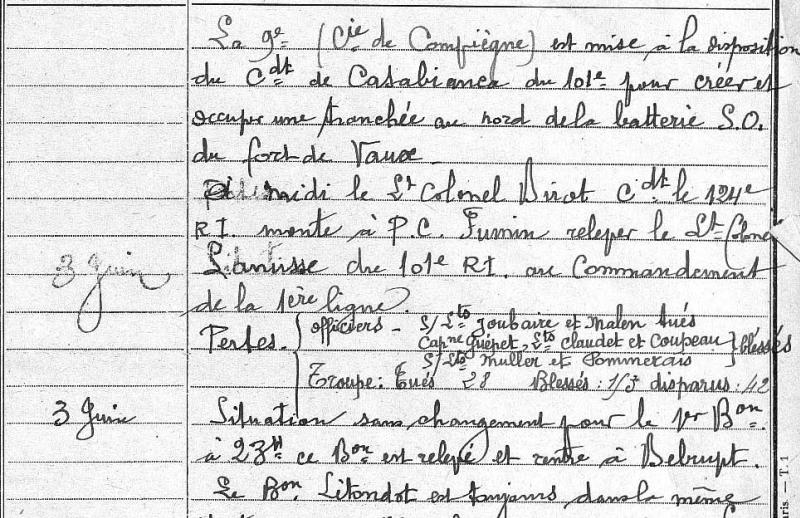 La 9e (Cie de Compiègne) est mise à la disposition
du Cdt de Casabianca du 101e pour créer et
occuper une tranchée au nord de la batterie S.O.
du fort de Vaux
A midi le Lt Colonel Birot Cdt le 124e
R.I. monte à P.C. Fumin relever le Lt Colonel
3 Juin Lanusse du 101e RI. au Commandement
de la 1ère ligne.
Pertes. officiers - S/Lts Joubaire et Malen tués
Capne Guépet, Lts Claudet et Coupeau blessés
S/Lts Muller et Pommerais
Troupe: Tués 28 Blessés: disparus: 42
3 Juin Situation sans changement pour le 1er Bon.
à 23H ce Bon est relevé et rentre à Belrupt.
Le Bon Litondot est toujours dans la même
aris. — T. 1